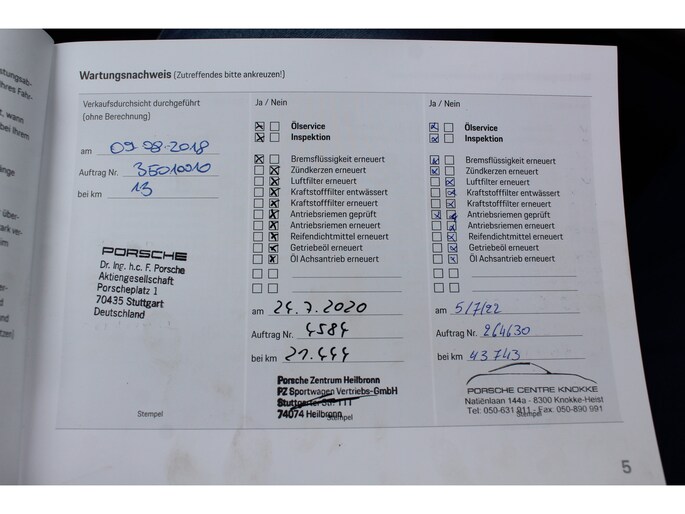 Wartungsnachweis (Zutreffendes bitte ankreuzen!)
Verkaufsdurchsicht durchgeführt
(ohne Berechnung)
am 09-08-2018
Auftrag Nr. 35010010
bei km 13
PORSCHE
Dr. Ing. h.c. F. Porsche
Aktiengesellschaft
Porscheplatz 1
70435 Stuttgart
Deutschland
Stempel
Ja / Nein
Ölservice
Inspektion
Bremsflüssigkeit erneuert
Zündkerzen erneuert
Luftfilter erneuert
Kraftstofffilter entwässert
Kraftstofffilter erneuert
Antriebsriemen geprüft
Antriebsriemen erneuert
Reifendichtmittel erneuert
Getriebeöl erneuert
Öl Achsantrieb erneuert
am 24.7.2020
Auftrag Nr. 4584
bei km 21.444
Porsche Zentrum Heilbronn
PZ Sportwagen Vertriebs-GmbH
Stuttgarter Str. 111
74074 Heilbronn
Stempel
Ja / Nein
Ölservice
Inspektion
Bremsflüssigkeit erneuert
Zündkerzen erneuert
Luftfilter erneuert
Kraftstofffilter entwässert
Kraftstofffilter erneuert
Antriebsriemen geprüft
Antriebsriemen erneuert
Reifendichtmittel erneuert
Getriebeöl erneuert
Öl Achsantrieb erneuert
am 5/7/22
Auftrag Nr. 264630
bei km 43743
PORSCHE CENTRE KNOKKE
Natiënlaan 144a - 8300 Knokke-Heist
Tel: 050-631 911 - Fax: 050-890 991
Stempel
5